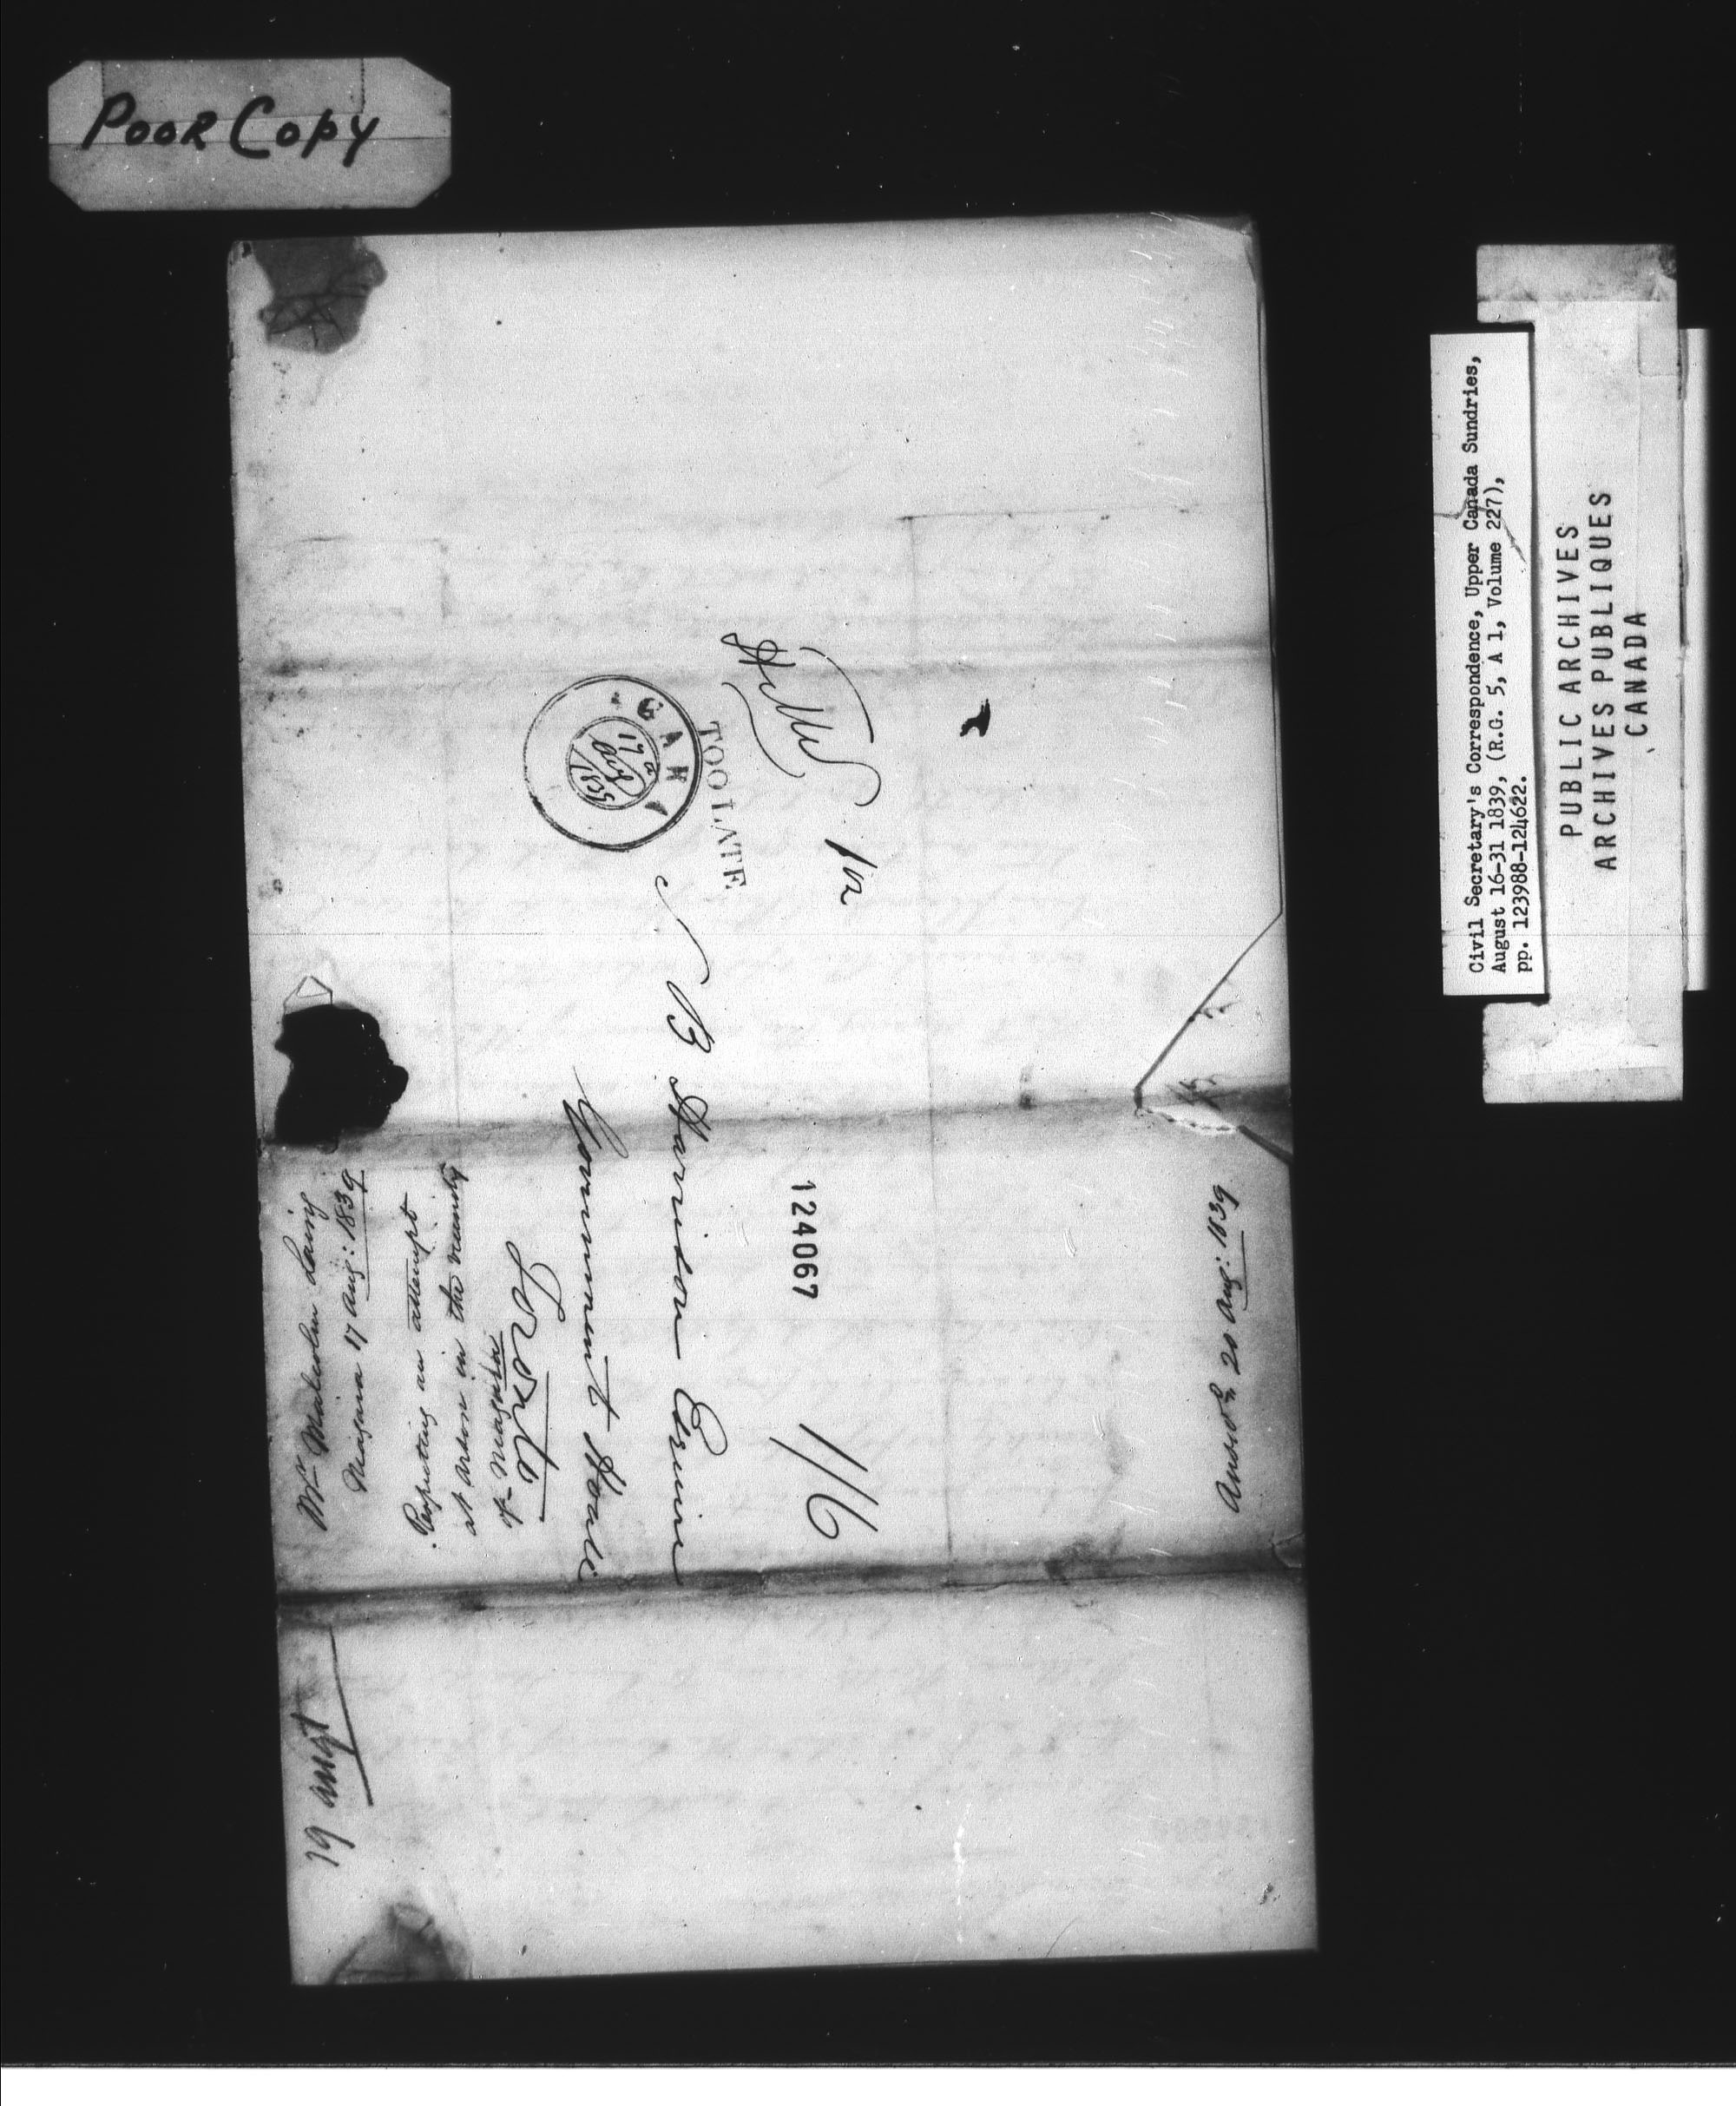 Poor Copy
Civil Secretary's Correspondence, Upper Canada Sundries,
August 16-31 1839, (R.G. 5, A 1, Volume 227),
pp. 123988-124622.
PUBLIC ARCHIVES
ARCHIVES PUBLIQUES
CANADA
17
Aug
TOO LATE
B Harrison Esquire
Government House
Toronto
124067
1/6
Mr Malcolm Laing
Niagara 17 Aug: 1839
Respecting an attempt
at arson in the vicinity
of Niagara
Answd 20 Aug: 1839
19 augt